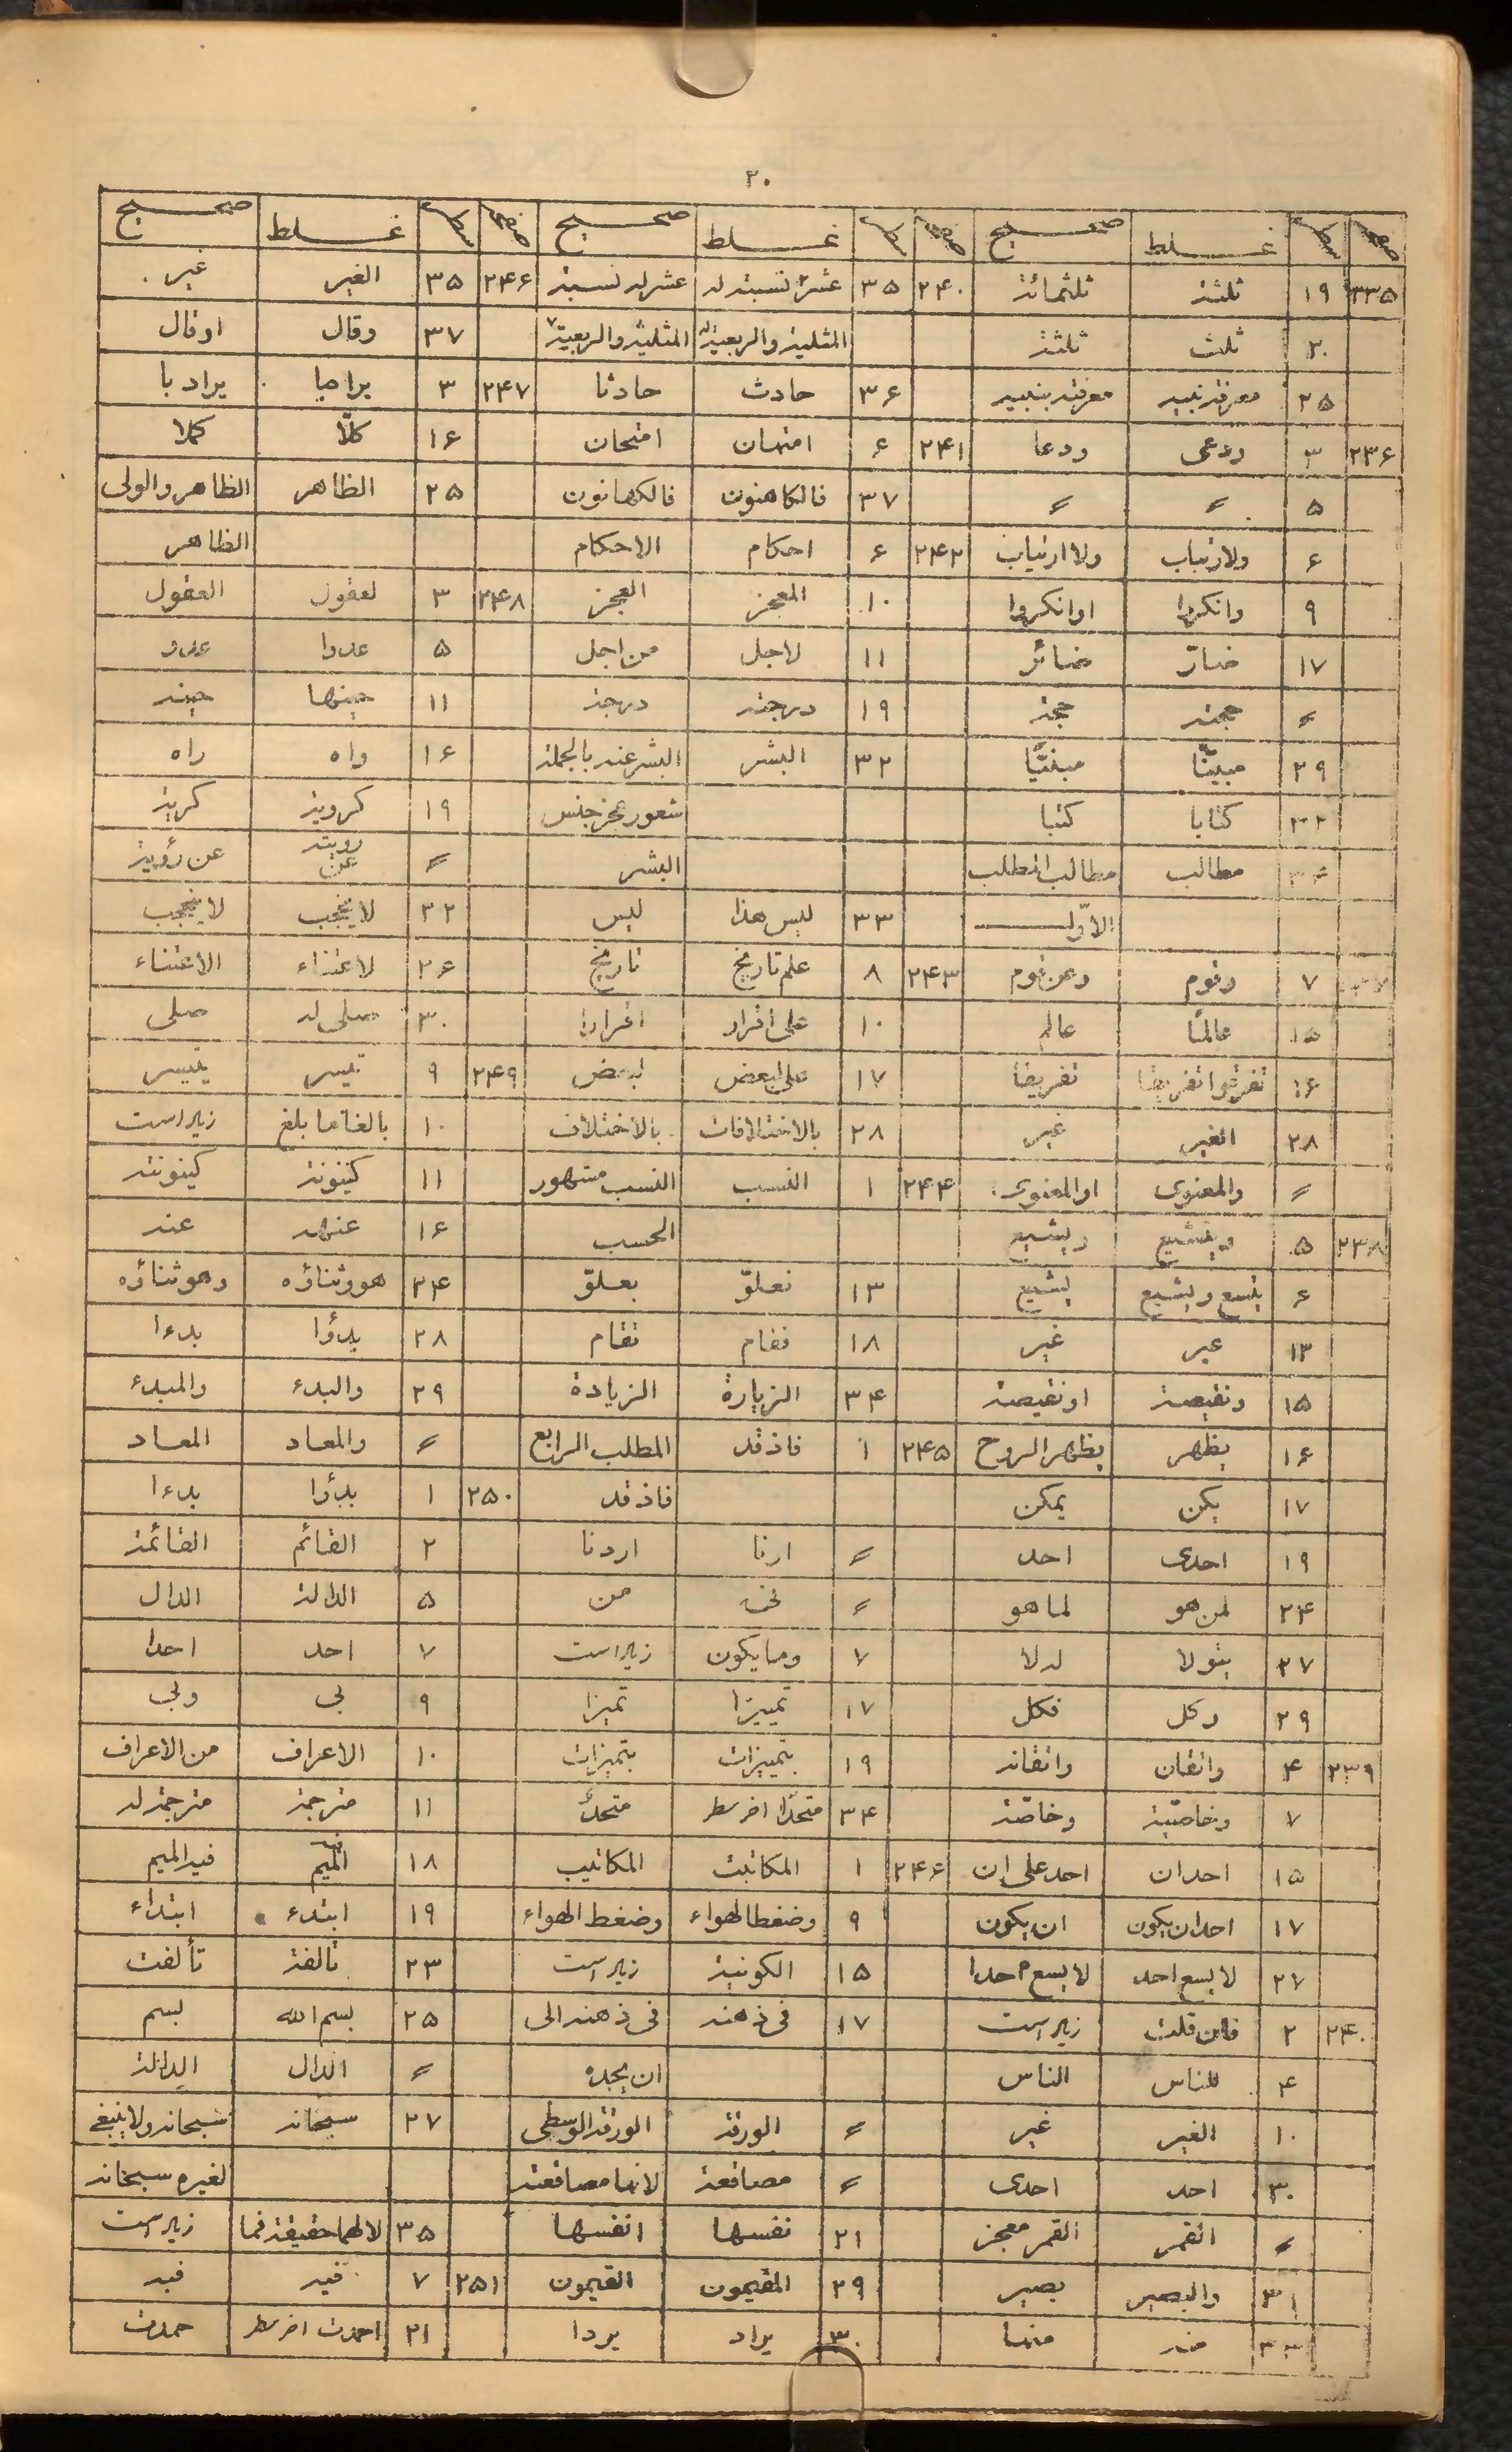 ٢٠
صفحه سطر غلط صحیح صفحه سطر غلط صحیح صفحه سطر غلط صحیح
٢٣٥ ١٩ ثلثة ثلثمائة ٢٤٠ ٣٥ عشر نسبته له عشر له نسبة ٢٤۶ ٣٥ الغیر غیر
٢٠ ثلث ثلثة المثلیة والربعیة المثلیة والربعیة ٣٧ وقال اوقال
٢٥ حادث حادثا ٣۶ ٢٤٧ ٣ یراد با
٢٣۶ ٣ ودعی ودعا ٢٤١ ۶ امتهان امتحان ١۶ کلّا کملا
٥ 〃 〃 ٣٧ فالکاهنون فالکهانون ٢٥ الظاهر الظاهر والولی
۶ ولارتیاب ولا ارتیاب ٢٤٢ ۶ احکام الاحکام الظاهر
٩ وانکروا اوانکروا ١٠ المعجز العجز ٢٤٨ ٣ لعقول العقول
١٧ ضارّ ضائر ١١ لاجل من اجل ٥ عدوا عدو
〃 حجته حجة ١٩ درجته درجة ١١ حینها حینه
٢٩ مبیّنا مبنیّا ٣٢ البشر البشر عنه بالجملة ١۶ واه راه
٣٢ کتابا کتبا شعور عجز جنس ١٩ کرویة کریة
٣۴ مطالب مطالب المطلب البشر 〃 رویته عن عن رؤیة
الاوّل ٣٣ لیس هذا لیس ٢٢ لا یحجب
٧ وقوم وعن قوم ٢٤٣ ٨ علم تاریخ تاریخ ٢۶ لاعتناء الاعتناء
١٥ عالمًا عالم ١٠ علی اقرار اقرارا ٣٠ صلی له صلی
١۶ تفرقوا تفریقا تفریقا ١٧ علی بعض لبعض ٢٤٩ ٩ تیسر یتیسر
٢٨ الغیر غیر ٢٨ بالاختلافات بالاختلاف ١٠ بالغا ما بلغ زیاد است
〃 والمعنوی او المعنوی ٢٤٤ ١ النسب النسب مشهور ١١ کینونة کینونته
٢٣٨ ٥ ویتشیع ویشیع الحسب ١۶ عنهه عنه
۶ یتسع ویشیع یشیع ١٣ تعلوّ بعلوّ ٢۴ هووثناؤه وهو ثناؤه
١٣ عیر غیر ١٨ فقام تقام ٢٨ بدأوا بدءا
١٥ ونقیصة اونقیصة ٣۴ الزیارة الزیادة ٢٩ والبدء والمبدء
١۶ یظهر یظهر الروح ٢٤٥ ١ فاذ قد المطلب الرابع 〃 والمعاد المعاد
١٧ یکن یمکن فاذ قد ٢٥٠ ١ بدأوا بدءا
١٩ احدی احد 〃 ارنا اردنا ٢ القائم القائمة
٢۴ لمن هو لما هو 〃 نحن من ٥ الدالة الدال
٢٧ بتولا لدلا ٧ وما یکون زیاد است ٧ احد احدا
٢٩ وکل فکل ١٧ تمییزا تمیزا ٩ لی ولی
٢٣٩ ۴ واتقان واتقانه ١٩ بتمییزات بتمیزات ١٠ الاعراف من الاعراف
٧ وخاصّیة وخاصّة ٣۴ متحدًا اخر سطر متحدّ ١١ مترجمة مترجمة له
١٥ احدان احد علی ان ٢٤۶ ١ المکاتبت المکاتیب ١٨ المیم فیه المیم
١٧ احدان یکون ان یکون ٩ وضغطا لهواء وضغط الهواء ١٩ ابتدء ابتداء
٢٧ لا یسع احد لا یسع احدا ١٥ الکونیة زیاد است ٢٣ تالفة تألفت
٢٤٠ ٢ فان قلت زیاد است ١٧ فی ذهنه فی ذهنه الی ٢٥ بسم الله بسم
۴ للناس الناس ان یجده 〃 الدال الدالة
١٠ الغیر غیر 〃 الورقة الورقة الوسطی ٢٧ سبحانه سبحانه ولا ینبغی
٣٠ احد احدی 〃 مصافعة لانها مصافعة لغیره سبحانه
〃 القمر القمر معجز ٢١ نفسها انفسها ٣٥ لا لهما حقیقة فما زیاد است
٣١ والبصیر بصیر ٢٩ المقیمون القیمون ٢٥١ ٧ قید فید
٣٣ منه منها ٣٠ یراد یردا ٢١ احمدت اخر سطر حمدت